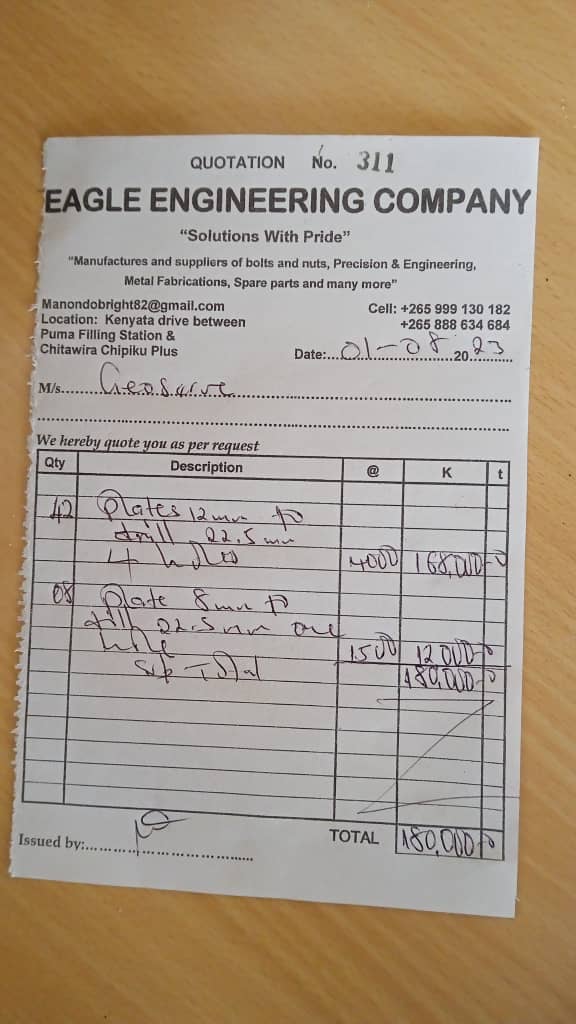 QUOTATION No. 311
EAGLE ENGINEERING COMPANY
“Solutions With Pride”
“Manufactures and suppliers of bolts and nuts, Precision & Engineering,
Metal Fabrications, Spare parts and many more”
Manondobright82@gmail.com
Cell: +265 999 130 182
Location: Kenyata drive between
+265 888 634 684
Puma Filling Station &
Chitawira Chipiku Plus
Date:...01-08...20...23...
M/s.....Geoserve.....
We hereby quote you as per request
Qty Description @ K t
42 Plates 12mm to
drill 22.5mm
4 holes 4000 168,000-0
08 Plate 8mm to
drill 22.5mm one
hole 1500 12 000-0
Sub Total 180,000-0
Issued by:..........
TOTAL 180,000-0